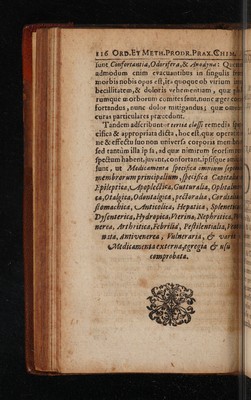 116 ORD. ET METH. PRODR. PRAX. CHIM.
sunt Confortantia, Odorifera, & Anodyna: Quem
admodum enim evacuantibus in singulis fere
morbis nobis opus est, ita quoque ob virium im
becillitatem, & doloris vehementiam, quæ ple
rumque morborum comites sunt, nunc ægros con
fortandos, nunc dolor mitigandus; quæ omnia
curas particulares præcedunt.
Tandem adscribont tertia classi remedia spe
cifica & appropriata dicta, hoc est, quæ operatio
ne & effectu suo non universa corpora membra
sed tantum illa ipsa, ad quæ
spectum habent, juvant, confortant, ipsisque amica
sunt, ut Medicamenta specifica omnium septem
membrorum principalium, specifica Capitalia,
Epileptica, Apoplectica, Gutturalia, Ophtalmi
ca, Otalgica, Odontalgica, pectoralia, Cordialia
stomachica, Anticolica, Hepatica, Splenetica
Dysenterica, Hydropica, Vterina, Nephritica, Ve
nerea, Arthritica, Febrilia, Pestilentialia,
Antivenerea, Vulneraria, & varia
Medicamenta externa, egregia & usu
comprobata.